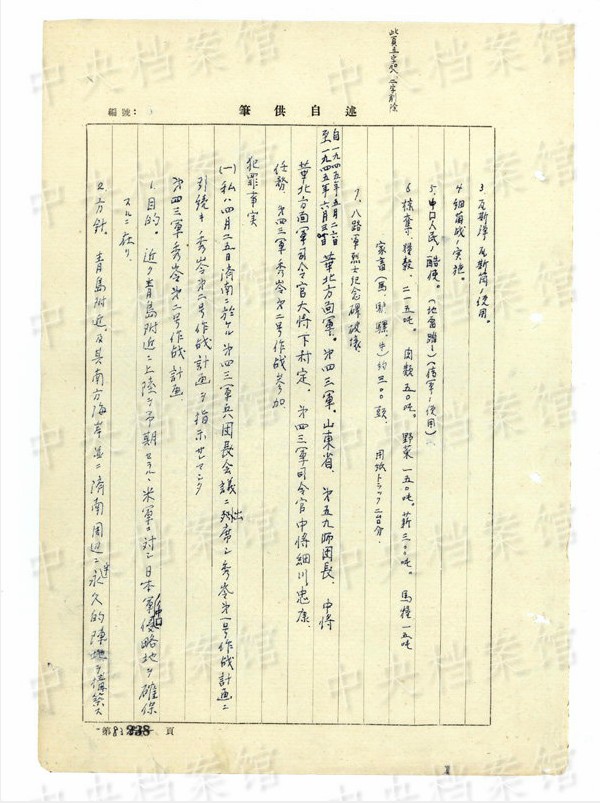 此頁主空知人二字削除
述自供筆
編號:
3. 瓦斯弾瓦斯筒ノ使用。
4. 細菌戦ノ実施。
5. 中国人民ノ酷使。(地雷踏ミ)(偵軍ノ使用)
6. 掠奪、糧穀、二一五屯。肉類五〇屯。野菜一五〇屯。薪三〇〇屯。馬糧一五屯
家畜(馬、駄、騾、牛)約三〇〇頭、用紙トラック二台分、
7. 八路軍烈士紀念碑破壊
自一九四五年五月二六日
至一九四五年六月三〇日
華北方面軍。第四三軍。山東省、第五九師団長、中将
華北方面軍司令官大将下村定、第四三軍司令官中将細川忠康、
任務 第四三軍秀嶺第二号作战参加
犯罪事実
(一) 私ハ四月二五日済南ニ於ケル第四三軍兵団長会議ニ出席シ秀嶺第一号作战計画ニ
引続キ秀嶺第二号作战計画ヲ指示セラレタ
第四三軍秀嶺第二号作战計画
1. 目的。近ク青島附近ニ上陸ヲ予期セラル、米軍ニ対シ日本軍侵略地ヲ確保
スルニ在リ
2. 方針。青島附近及其南方海岸並ニ済南周辺ニ永久的陣地ヲ構築ス
第 83 頁
中央档案馆